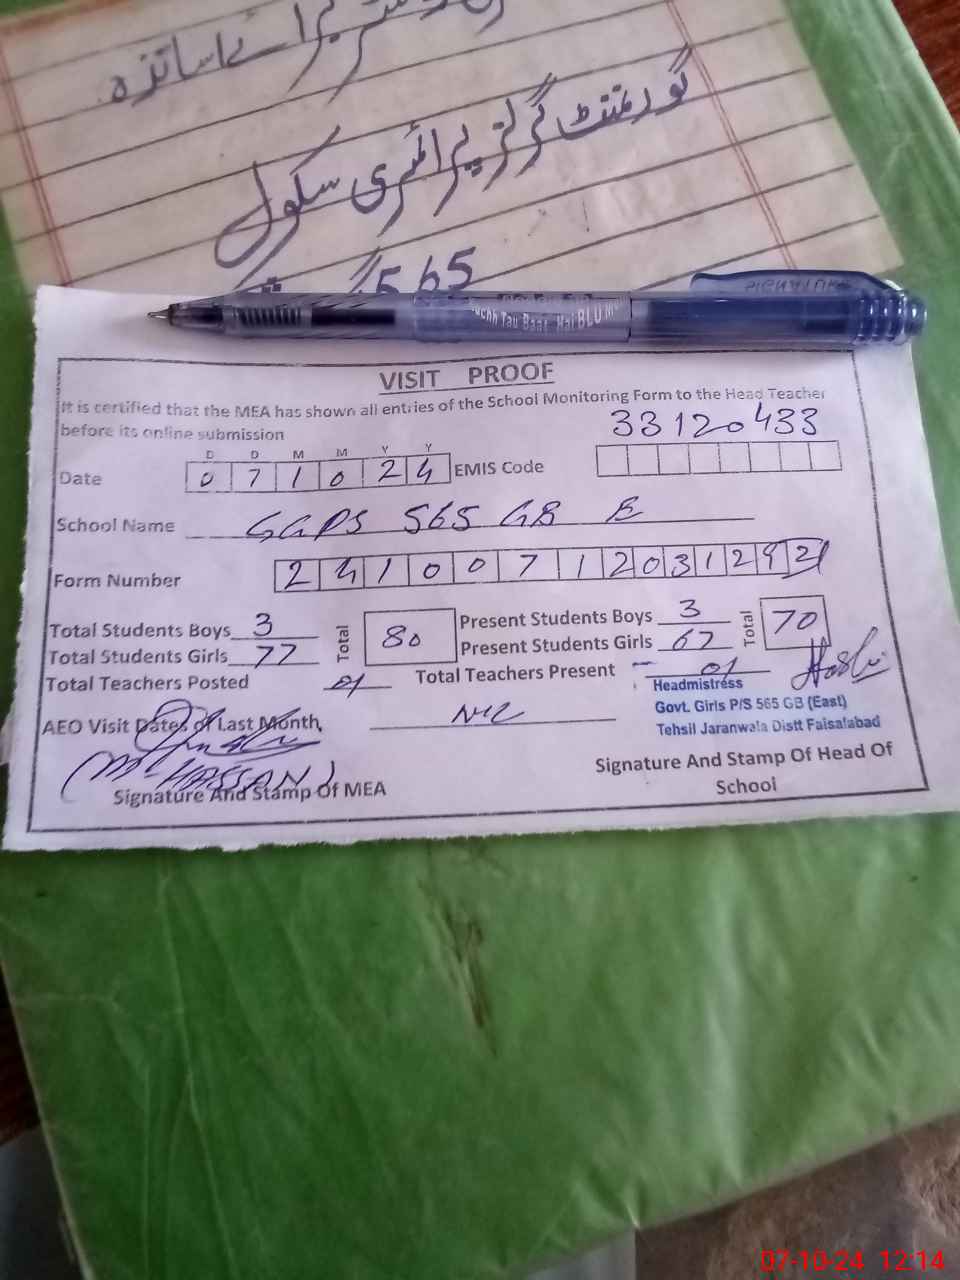 برائے اساتذہ
گورنمنٹ گرلز پرائمری سکول
565
VISIT PROOF
It is certified that the MEA has shown all entries of the School Monitoring Form to the Head Teacher
before its online submission
33120433
D D M M Y Y
Date 0 7 1 0 2 4 EMIS Code
School Name GGPS 565 GB E
Form Number 2 4 1 0 0 7 1 2 0 3 1 2 9
Total Students Boys 3 Total 80 Present Students Boys 3 Total 70
Total Students Girls 77 Present Students Girls 67
Total Teachers Posted 01 Total Teachers Present 01
Headmistress
Govt. Girls P/S 565 GB (East)
Tehsil Jaranwala Distt Faisalabad
AEO Visit Dates of Last Month, Nil
(M HASSAN)
Signature And Stamp Of MEA
Signature And Stamp Of Head Of
School
07-10-24 12:14